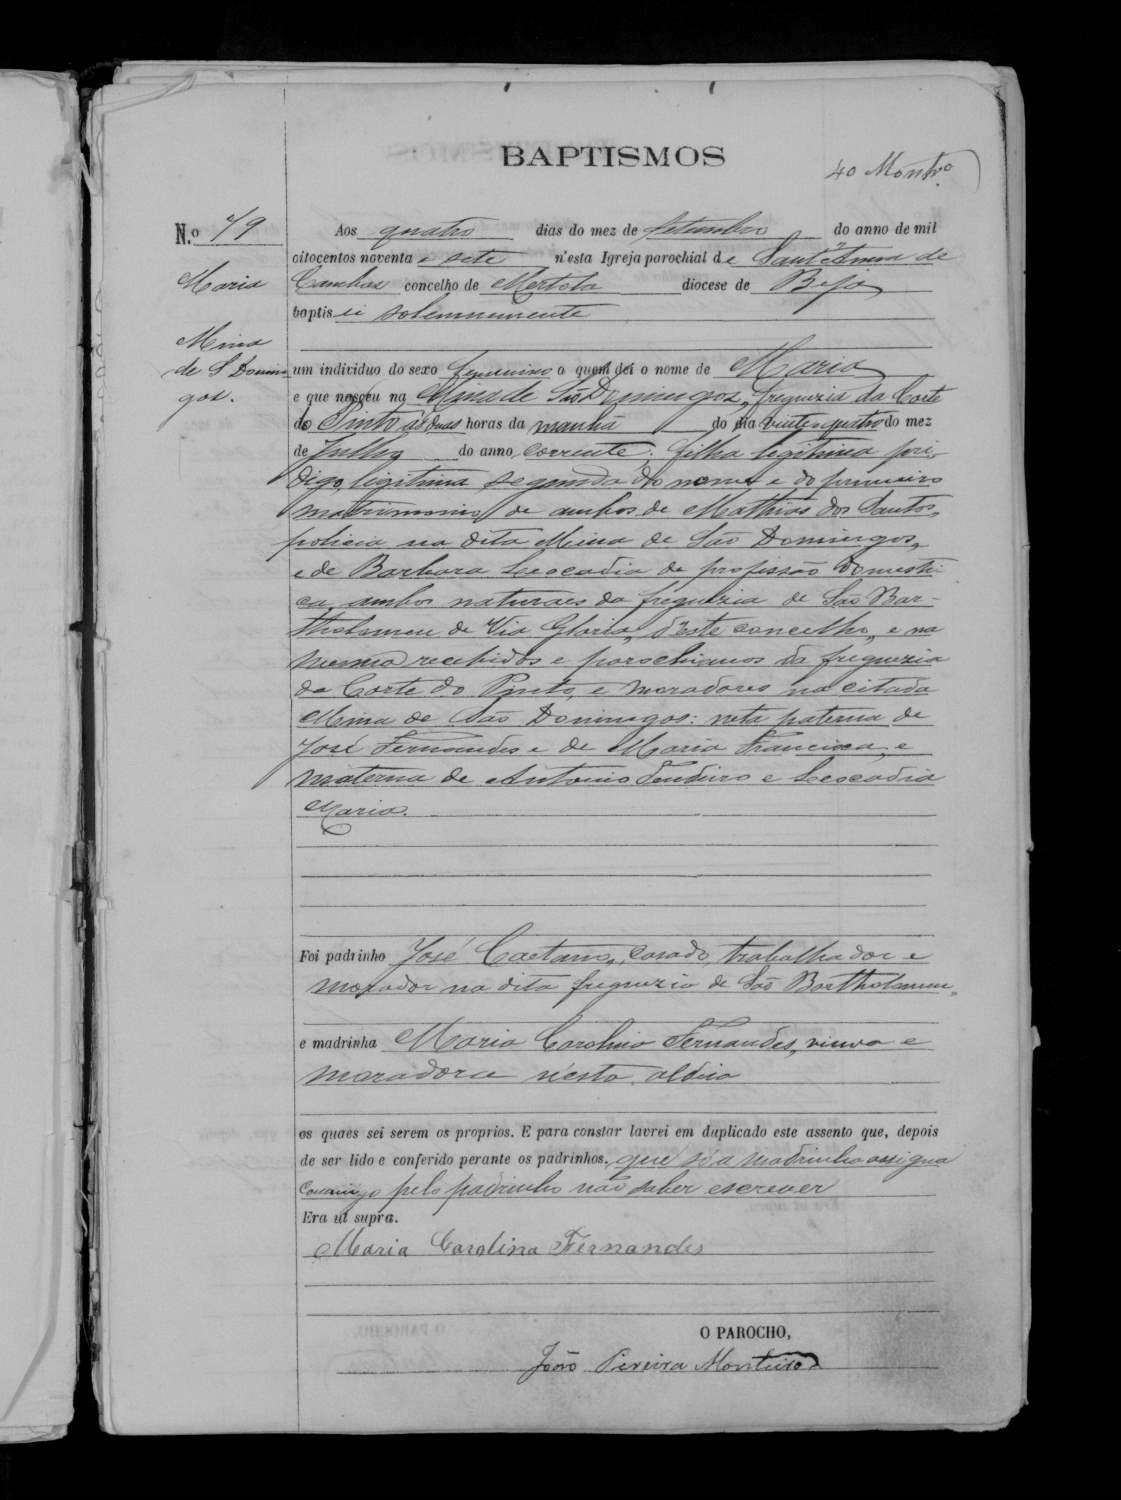 BAPTISMOS
40 Montro
N.o 79
Aos quatro dias do mez de Setembro do anno de mil
oitocentos noventa e sete n'esta Igreja parochial de Sant'Anna de
Maria
Cambas concelho de Mertola diocese de Beja
baptisei solemnemente
Mina
de S Domin
gos.
um individuo do sexo femenino a quem dei o nome de Maria
e que nasceu na Mina de São Domingos, freguezia da Corte
do Pinto ás duas horas da manhã do dia vinte e quatro do mez
de Julho do anno corrente, filha legitima, por
digo, legitima segunda do nome e do primeiro
matrimonio de ambos de Mathias dos Santos,
policia na dita Mina de São Domingos,
e de Barbara Leocadia de profissão domesti-
ca, ambos naturaes da freguezia de São Bar-
tholomeu de Via Gloria, d'este concelho, e na
mesma recebidos e parochianos da freguezia
da Corte do Pinto, e moradores na citada
Mina de São Domingos: neta paterna de
José Fernandes e de Maria Francisca, e
materna de Antonio e Leocadia
Maria.
Foi padrinho José Caetano, casado, trabalhador e
morador na dita freguezia de São Bartholomeu,
e madrinha Maria Carolina Fernandes, viuva e
moradora n'esta aldeia
os quaes sei serem os proprios. E para constar lavrei em duplicado este assento que, depois
de ser lido e conferido perante os padrinhos, que só a madrinha assigna
comigo pelo padrinho não saber escrever
Era ut supra.
Maria Carolina Fernandes
O PAROCHO,
João Pereira Monteiro